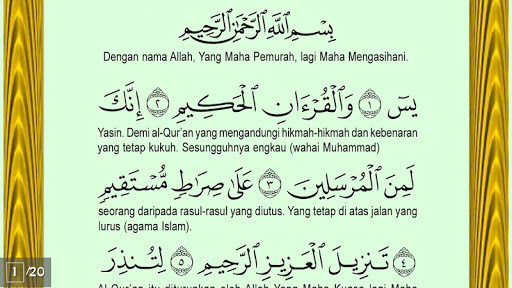 بِسْمِ اللَّهِ الرَّحْمَٰنِ الرَّحِيمِ
Dengan nama Allah, Yang Maha Pemurah, lagi Maha Mengasihani.
يسٓ ﴿١﴾ وَالْقُرْءَانِ الْحَكِيمِ ﴿٢﴾ إِنَّكَ
Yasin. Demi al-Qur'an yang mengandungi hikmah-hikmah dan kebenaran
yang tetap kukuh. Sesungguhnya engkau (wahai Muhammad)
لَمِنَ الْمُرْسَلِينَ ﴿٣﴾ عَلَىٰ صِرَاطٍ مُّسْتَقِيمٍ
seorang daripada rasul-rasul yang diutus. Yang tetap di atas jalan yang
lurus (agama Islam).
﴿٤﴾ تَنزِيلَ الْعَزِيزِ الرَّحِيمِ ﴿٥﴾ لِتُنذِرَ
Al-Qur'an itu diturunkan oleh Allah Yang Maha Kuasa lagi Maha
1 /20